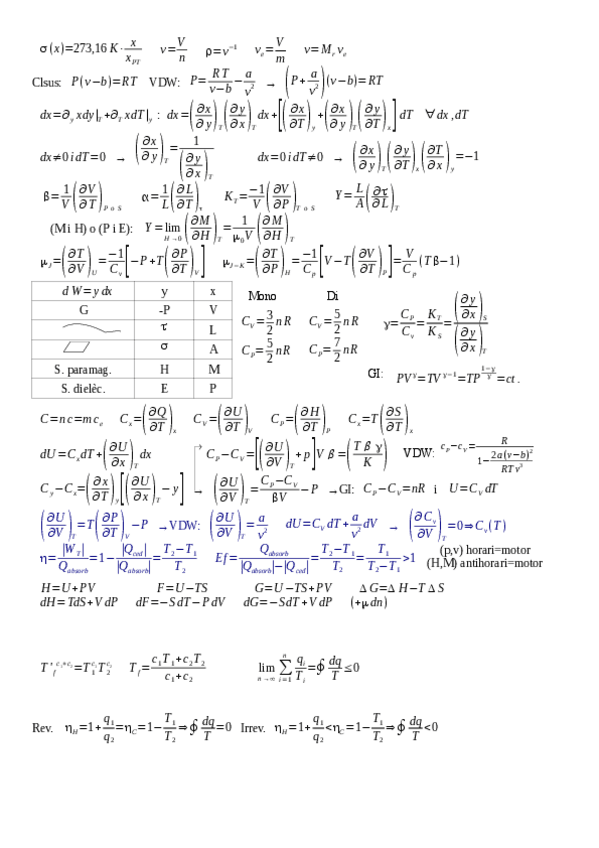 σ(x)=273,16 K·x/x_PT   v=V/n   ρ=v⁻¹   v_e=V/m   v=M_r v_e
Clsus: P(v−b)=RT   VDW: P=RT/(v−b)−a/v² → (P+a/v²)(v−b)=RT
dx=∂_y x dy|_T+∂_T x dT|_y : dx=(∂x/∂y)_T(∂y/∂x)_T dx+[(∂x/∂T)_y+(∂x/∂y)_T(∂y/∂T)_x] dT   ∀dx,dT
dx≠0 i dT=0 → (∂x/∂y)_T=1/(∂y/∂x)_T   dx=0 i dT≠0 → (∂x/∂y)_T(∂y/∂T)_x(∂T/∂x)_y=−1
β=1/V(∂V/∂T)_P o S   α=1/L(∂L/∂T)_τ   K_T=−1/V(∂V/∂P)_T o S   Y=L/A(∂τ/∂L)_T
(M i H) o (P i E): Y=lim_H→0(∂M/∂H)_T=1/(μ₀V)(∂M/∂H)_T
μ_J=(∂T/∂V)_U=−1/C_v[−P+T(∂P/∂T)_V]   μ_J−K=(∂T/∂P)_H=−1/C_p[V−T(∂V/∂T)_P]=V/C_p(Tβ−1)
d W=y dx   y   x
G   -P   V
τ   L
σ   A
S. paramag.   H   M
S. dielèc.   E   P
Mono   Di
C_V=3/2 nR   C_V=5/2 nR
C_P=5/2 nR   C_P=7/2 nR
γ=C_P/C_V=K_T/K_S=(∂y/∂x)_S/(∂y/∂x)_T
GI: PV^γ=TV^(γ−1)=TP^((1−γ)/γ)=ct.
C=nc=mc_e   C_x=(∂Q/∂T)_x   C_V=(∂U/∂T)_V   C_P=(∂H/∂T)_P   C_x=T(∂S/∂T)_x
dU=C_x dT+(∂U/∂x)_T dx   C_P−C_V=[(∂U/∂V)_T+p]V β=(Tβγ/K)   VDW: c_p−c_V=R/(1−2a(v−b)²/(RTv³))
C_y−C_x=(∂x/∂T)_y[(∂U/∂x)_T−y] → (∂U/∂V)_T=(C_P−C_V)/(βV)−P →GI: C_P−C_V=nR i U=C_V dT
(∂U/∂V)_T=T(∂P/∂T)_V−P →VDW: (∂U/∂V)_T=a/v²   dU=C_V dT+a/v² dV → (∂C_v/∂V)_T=0⇒C_v(T)
η=|W_T|/Q_absorb=1−|Q_ced|/|Q_absorb|=(T₂−T₁)/T₂   Ef=Q_absorb/(|Q_absorb|−|Q_ced|)=(T₂−T₁)/T₂=T₁/(T₂−T₁)>1   (p,v) horari=motor
(H,M) antihorari=motor
H=U+PV   F=U−TS   G=U−TS+PV   ΔG=ΔH−TΔS
dH=TdS+V dP   dF=−S dT−P dV   dG=−SdT+V dP   (+μdn)
T_f^(c₁+c₂)=T₁^c₁ T₂^c₂   T_f=(c₁T₁+c₂T₂)/(c₁+c₂)   lim_n→∞ ∑_i=1^n q_i/T_i=∮dq/T≤0
Rev. η_H=1+q₁/q₂=η_C=1−T₁/T₂⇒∮dq/T=0   Irrev. η_H=1+q₁/q₂<η_C=1−T₁/T₂⇒∮dq/T<0